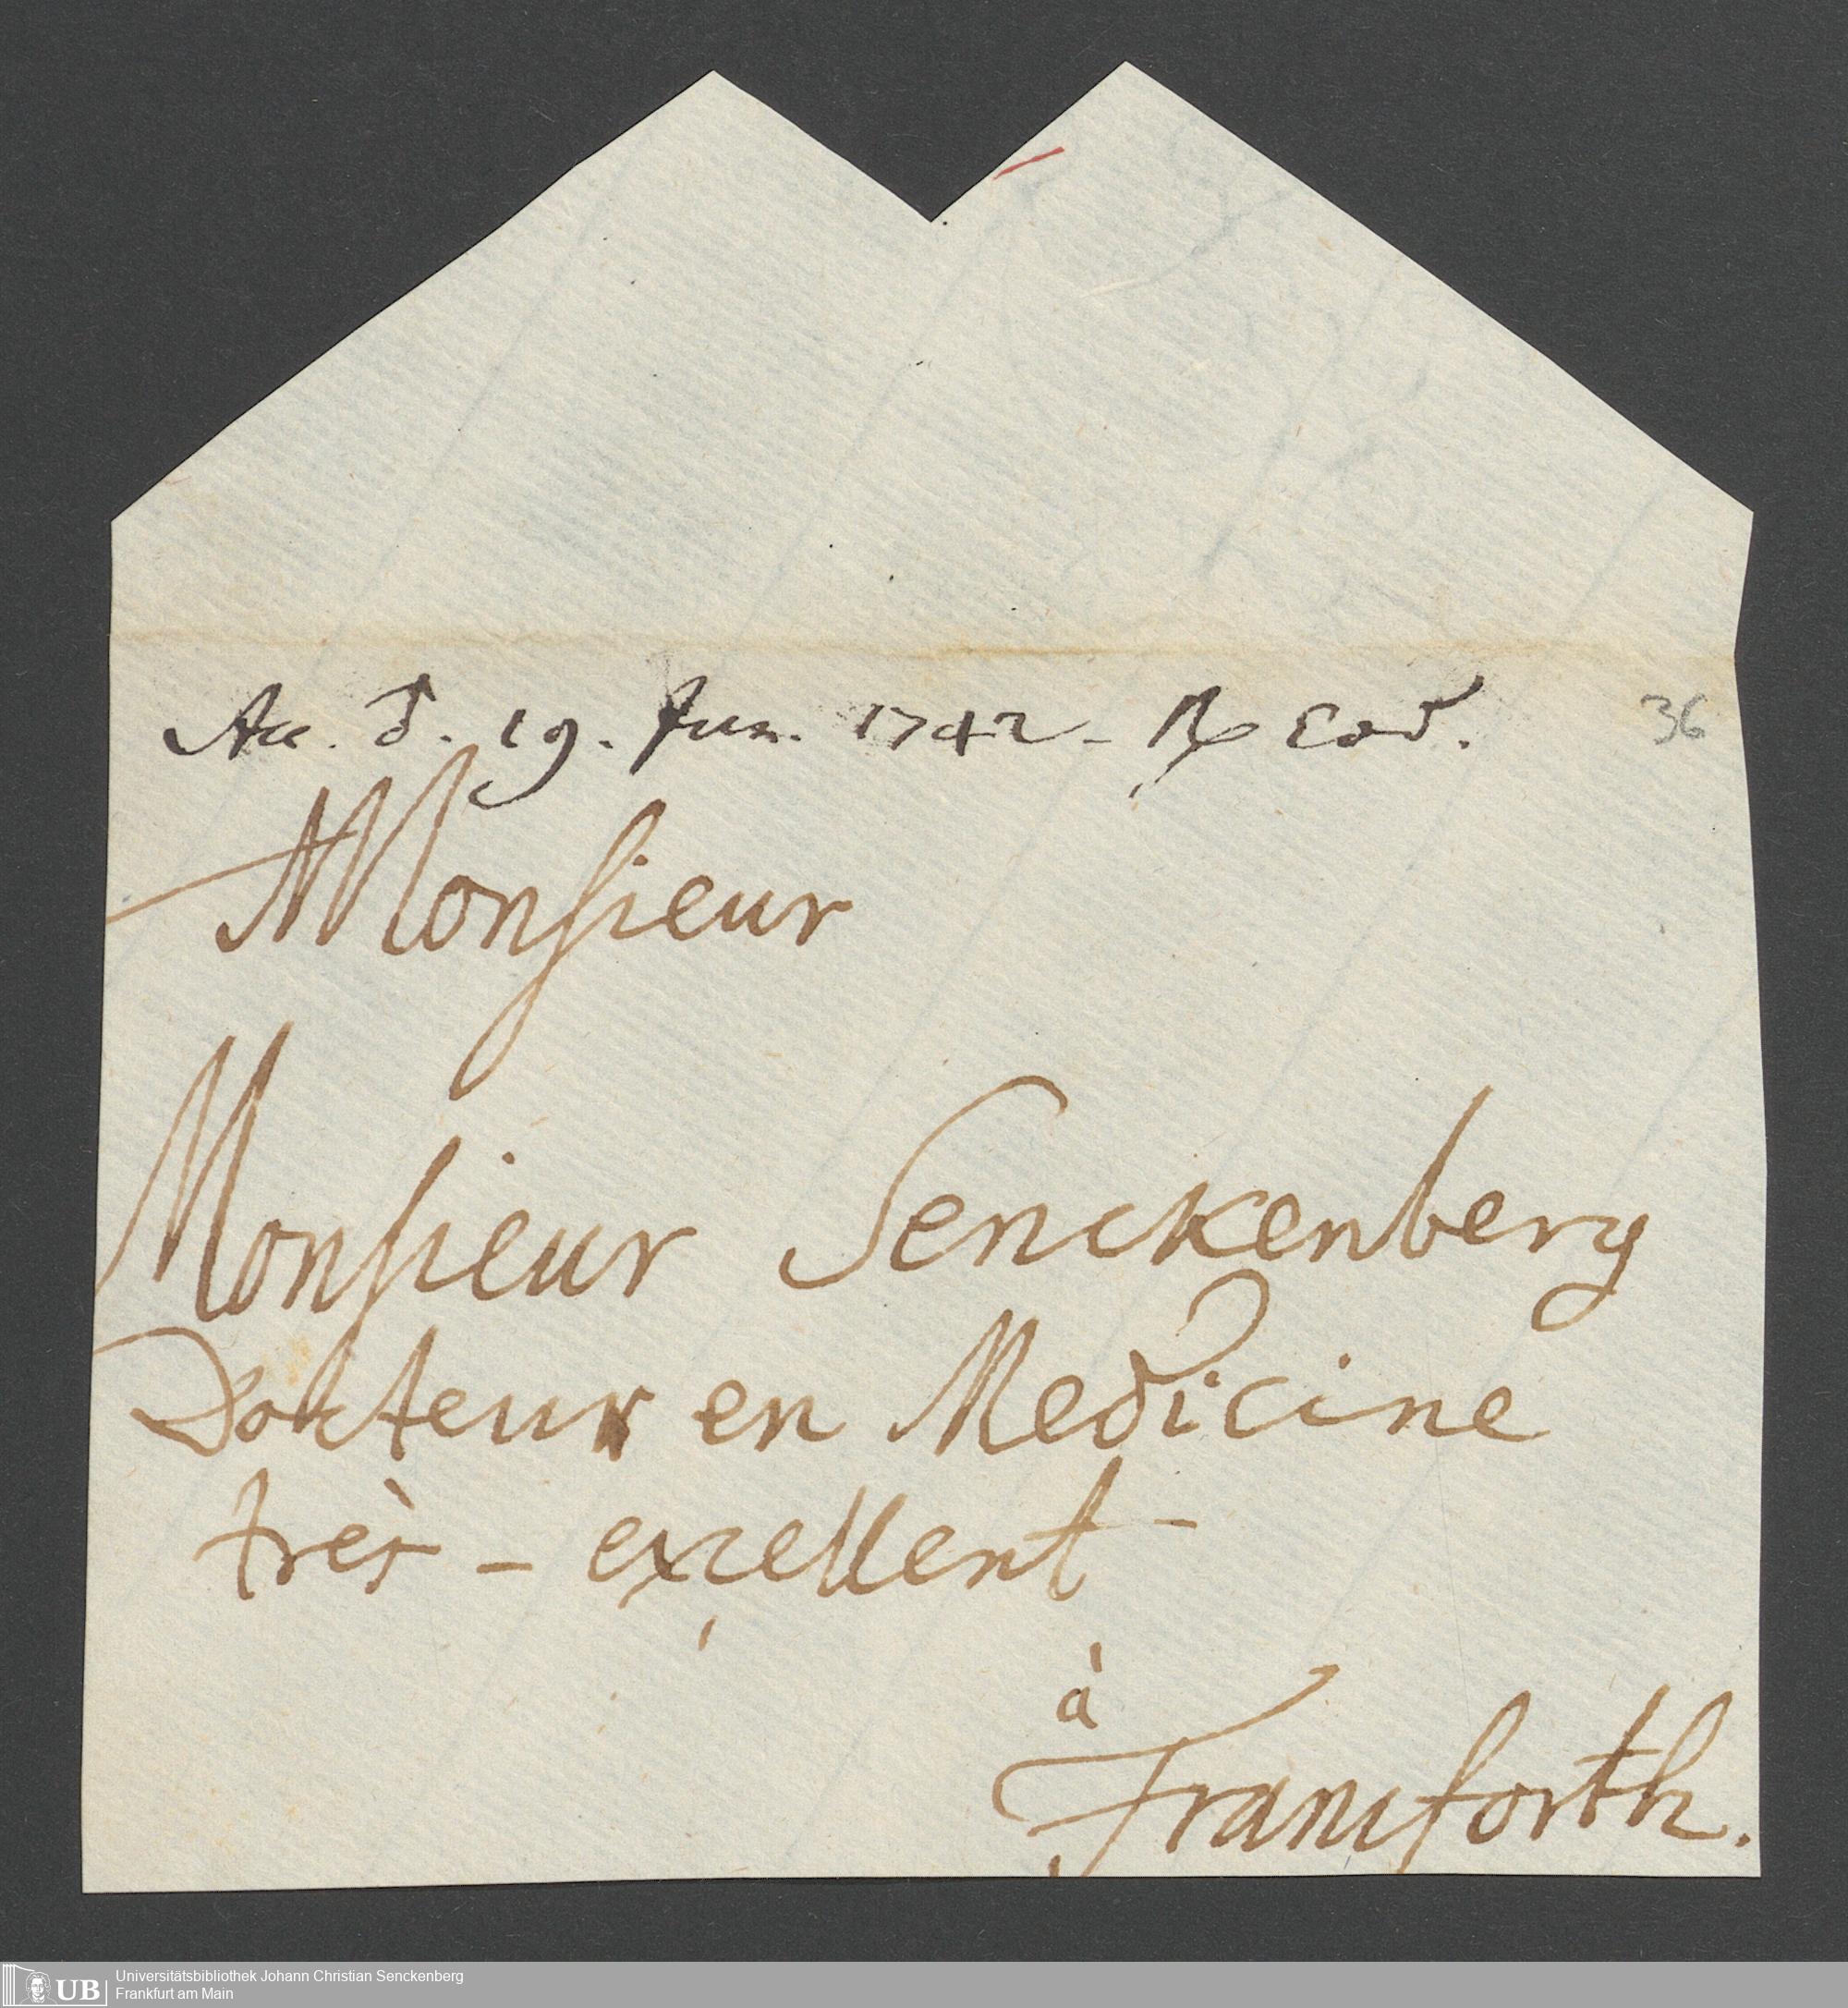 Acc. d. 19. Jun. 1742 - Rx eod.
36
Monsieur
Monsieur Senckenberg
Dokteur en Medicine
très - exzellent -
à
Francforth.
UB
Universitätsbibliothek Johann Christian Senckenberg
Frankfurt am Main